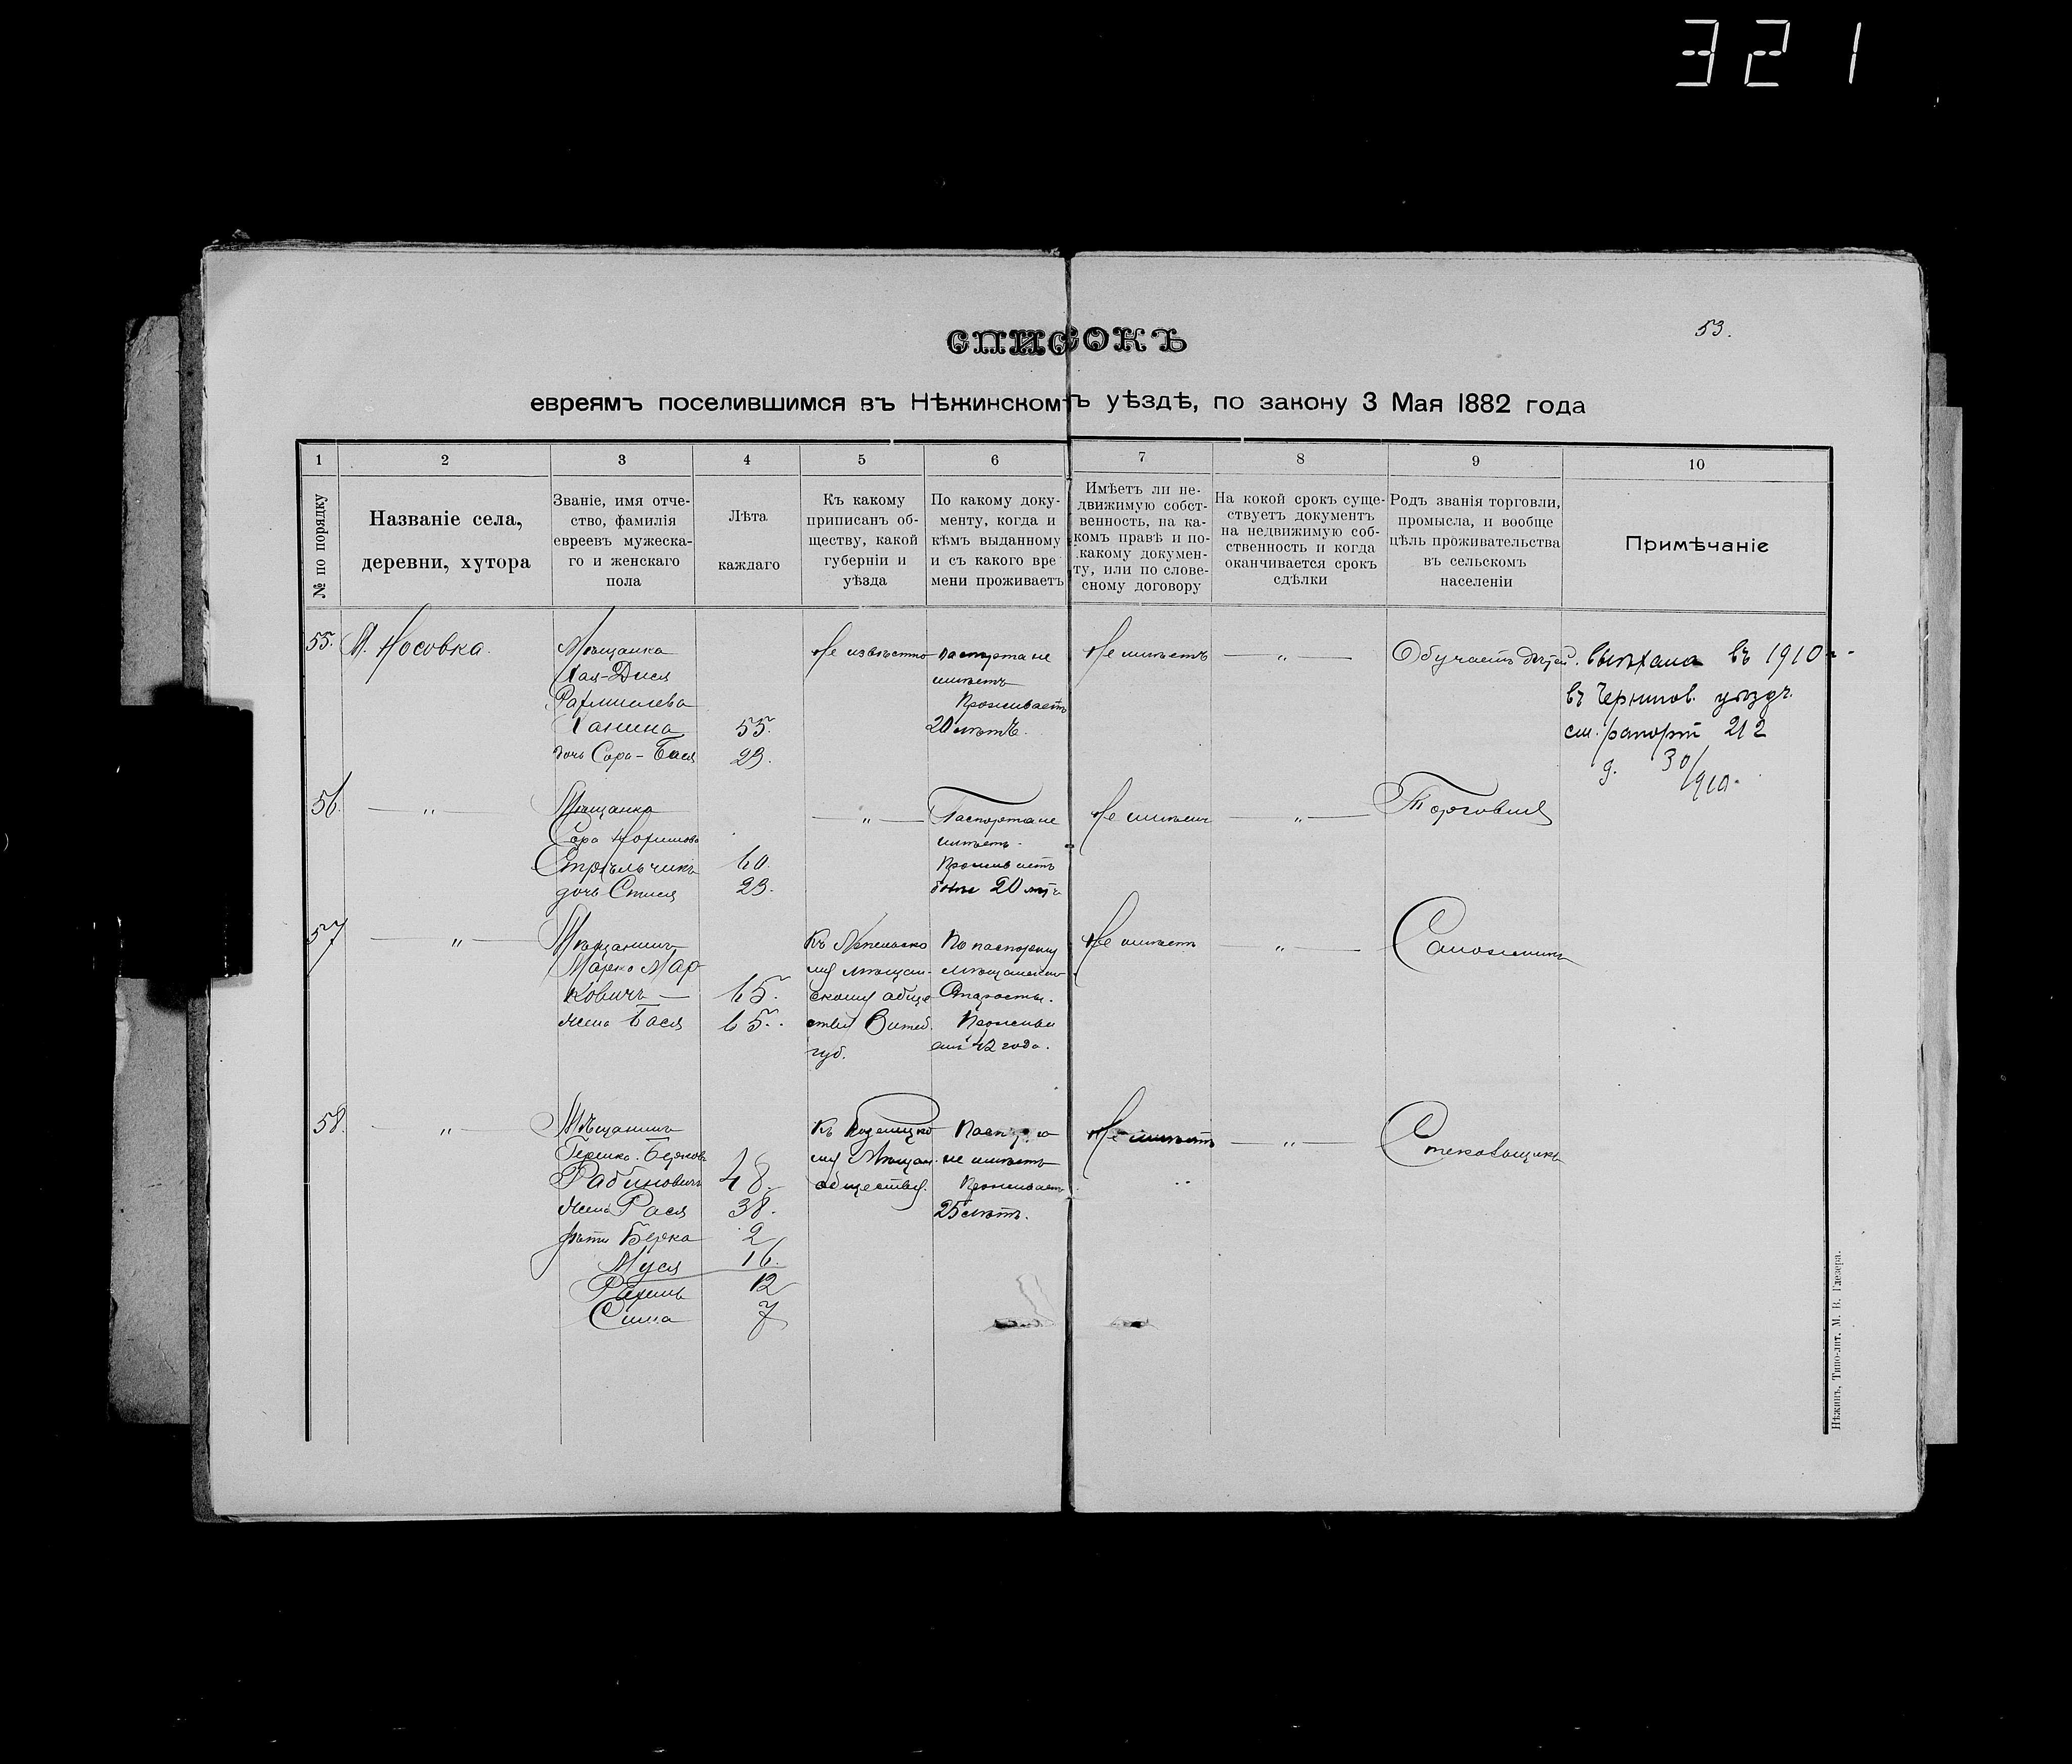 321
53.
СПИСОКЪ
евреямъ поселившимся въ Нѣжинскомъ уѣздѣ, по закону 3 Мая 1882 года
1 2 3 4 5 6 7 8 9 10
№ по порядку
Названіе села,
деревни, хутора
Званіе, имя отче-
ство, фамилія
евреевъ мужеска-
го и женскаго
пола
Лѣта
каждаго
Къ какому
приписанъ об-
ществу, какой
губерніи и
уѣзда
По какому доку-
менту, когда и
кѣмъ выданному
и съ какого вре
мени проживаетъ
Имѣетъ ли не-
движимую собст-
венность, на ка-
комъ правѣ и по
какому докумен-
ту, или по слове-
сному договору
На кокой срокъ суще-
ствуетъ документъ
на недвижимую соб-
ственность и когда
оканчивается срокъ
сдѣлки
Родъ званія торговли,
промысла, и вообще
цѣль проживательства
въ сельскомъ
населеніи
Примѣчаніе
55. М. Носовка.
Мѣщанка
Хая-Дися
Ханина 55.
дочь Сора-Бася 23.
Не извѣстно
паспорта не
имѣетъ
Проживаетъ
20 лѣтъ.
Не имѣетъ
— „ —
Обучаетъ дѣтей.
выѣхала въ 1910 г.
въ Чернигов. уѣздъ.
см. рапортъ 212
д. 30/910.
56. — „ —
Мѣщанка
Сора
Стрѣльчикъ 60.
дочь Стися 23.
— „ —
Паспорта не
имѣетъ.
Проживаетъ
болѣе 20 лѣтъ
Не имѣетъ
— „ —
Торговля
57 — „ —
Мѣщанинъ
Марко Мар-
ковичъ — 65.
жена Бася 65.
Къ Лепельско
му мѣщан-
скому обще
ству Витеб.
губ.
По паспорту
мѣщанскаго
Старосты.
Прожива
етъ 42 года.
Не имѣетъ
— „ —
Сапожникъ
58. — „ —
Мѣщанинъ
Гершко Берковъ
Рабиновичъ 48.
жена Рася 38.
дѣти Берка 2
Муся 16.
Рахиль 12
Сима 7
Къ Козелецко
му Мѣщан.
обществу.
Паспорта
не имѣетъ
Проживаетъ
25 лѣтъ.
Не имѣетъ
— „ —
Стекольщикъ
Нѣжинъ, Типо-лит. М. В. Глезера.